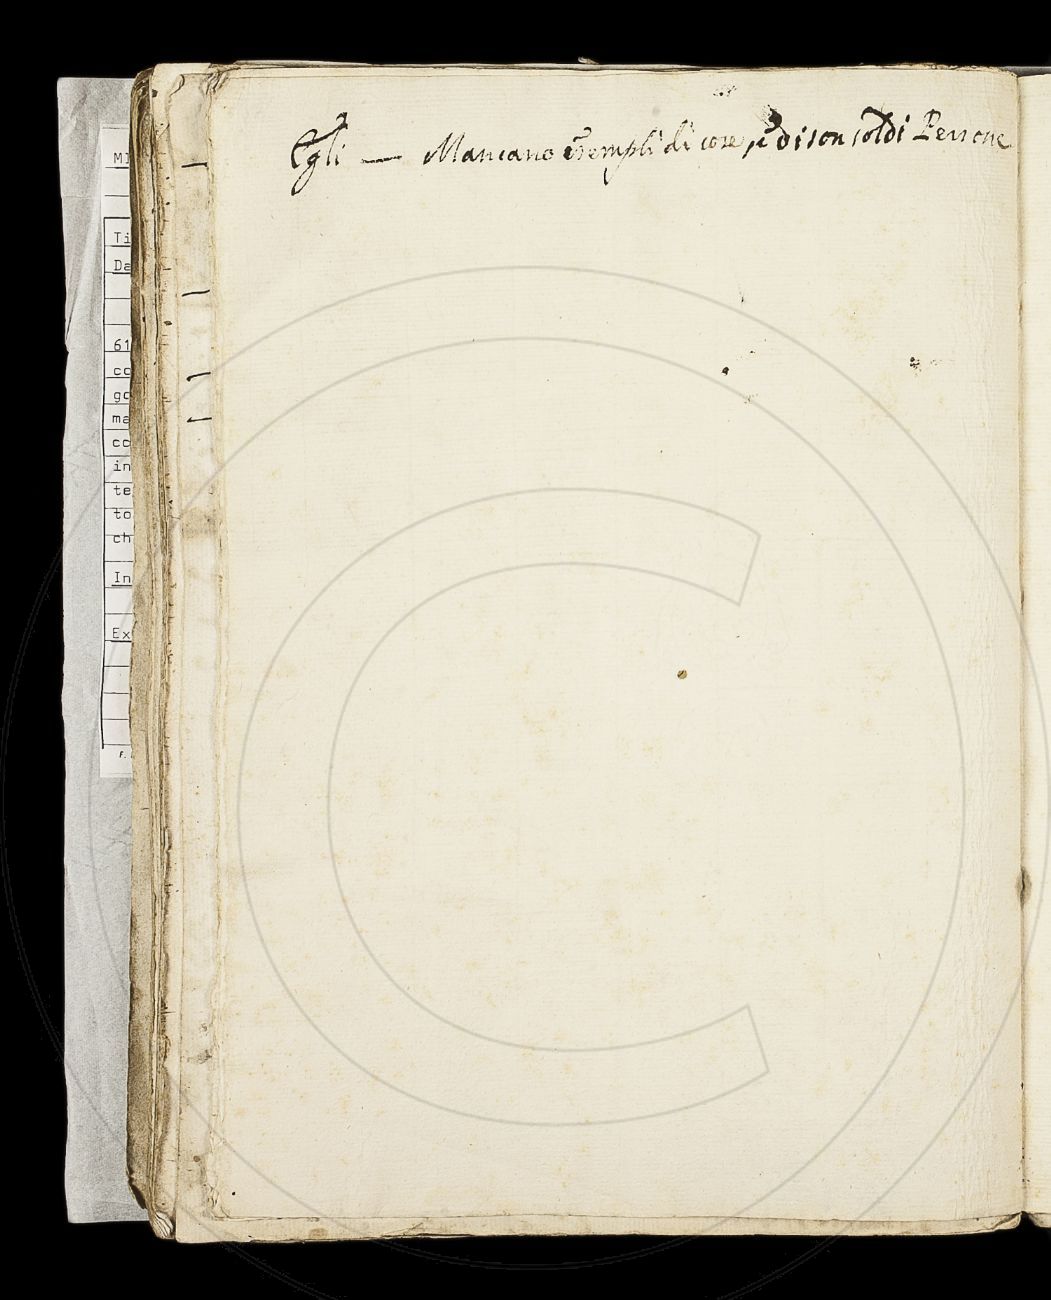 Egli — Mancano esempli di cose, e di son soldi Persone
MI
Ti
Da
61
co
go
ma
cc
in
te
to
ch
In
Ex
F.